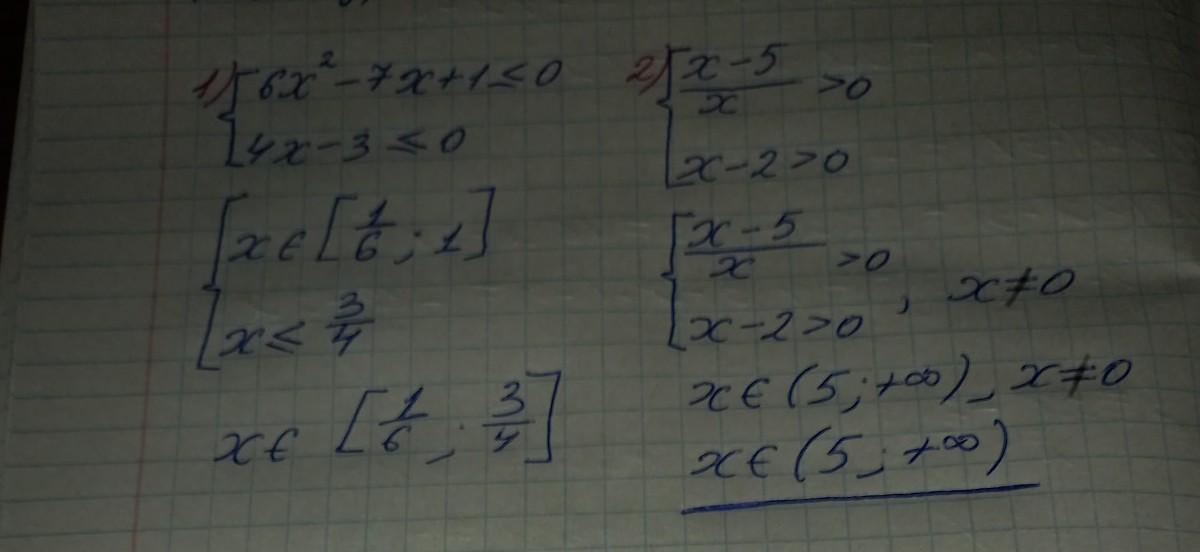 1) { 6x² - 7x + 1 ≤ 0
4x - 3 ≤ 0
{ x ∈ [1/6 ; 1]
x ≤ 3/4
x ∈ [1/6 ; 3/4]
2) { (x - 5)/x > 0
x - 2 > 0
{ (x - 5)/x > 0
x - 2 > 0 , x ≠ 0
x ∈ (5 ; +∞) , x ≠ 0
x ∈ (5 ; +∞)